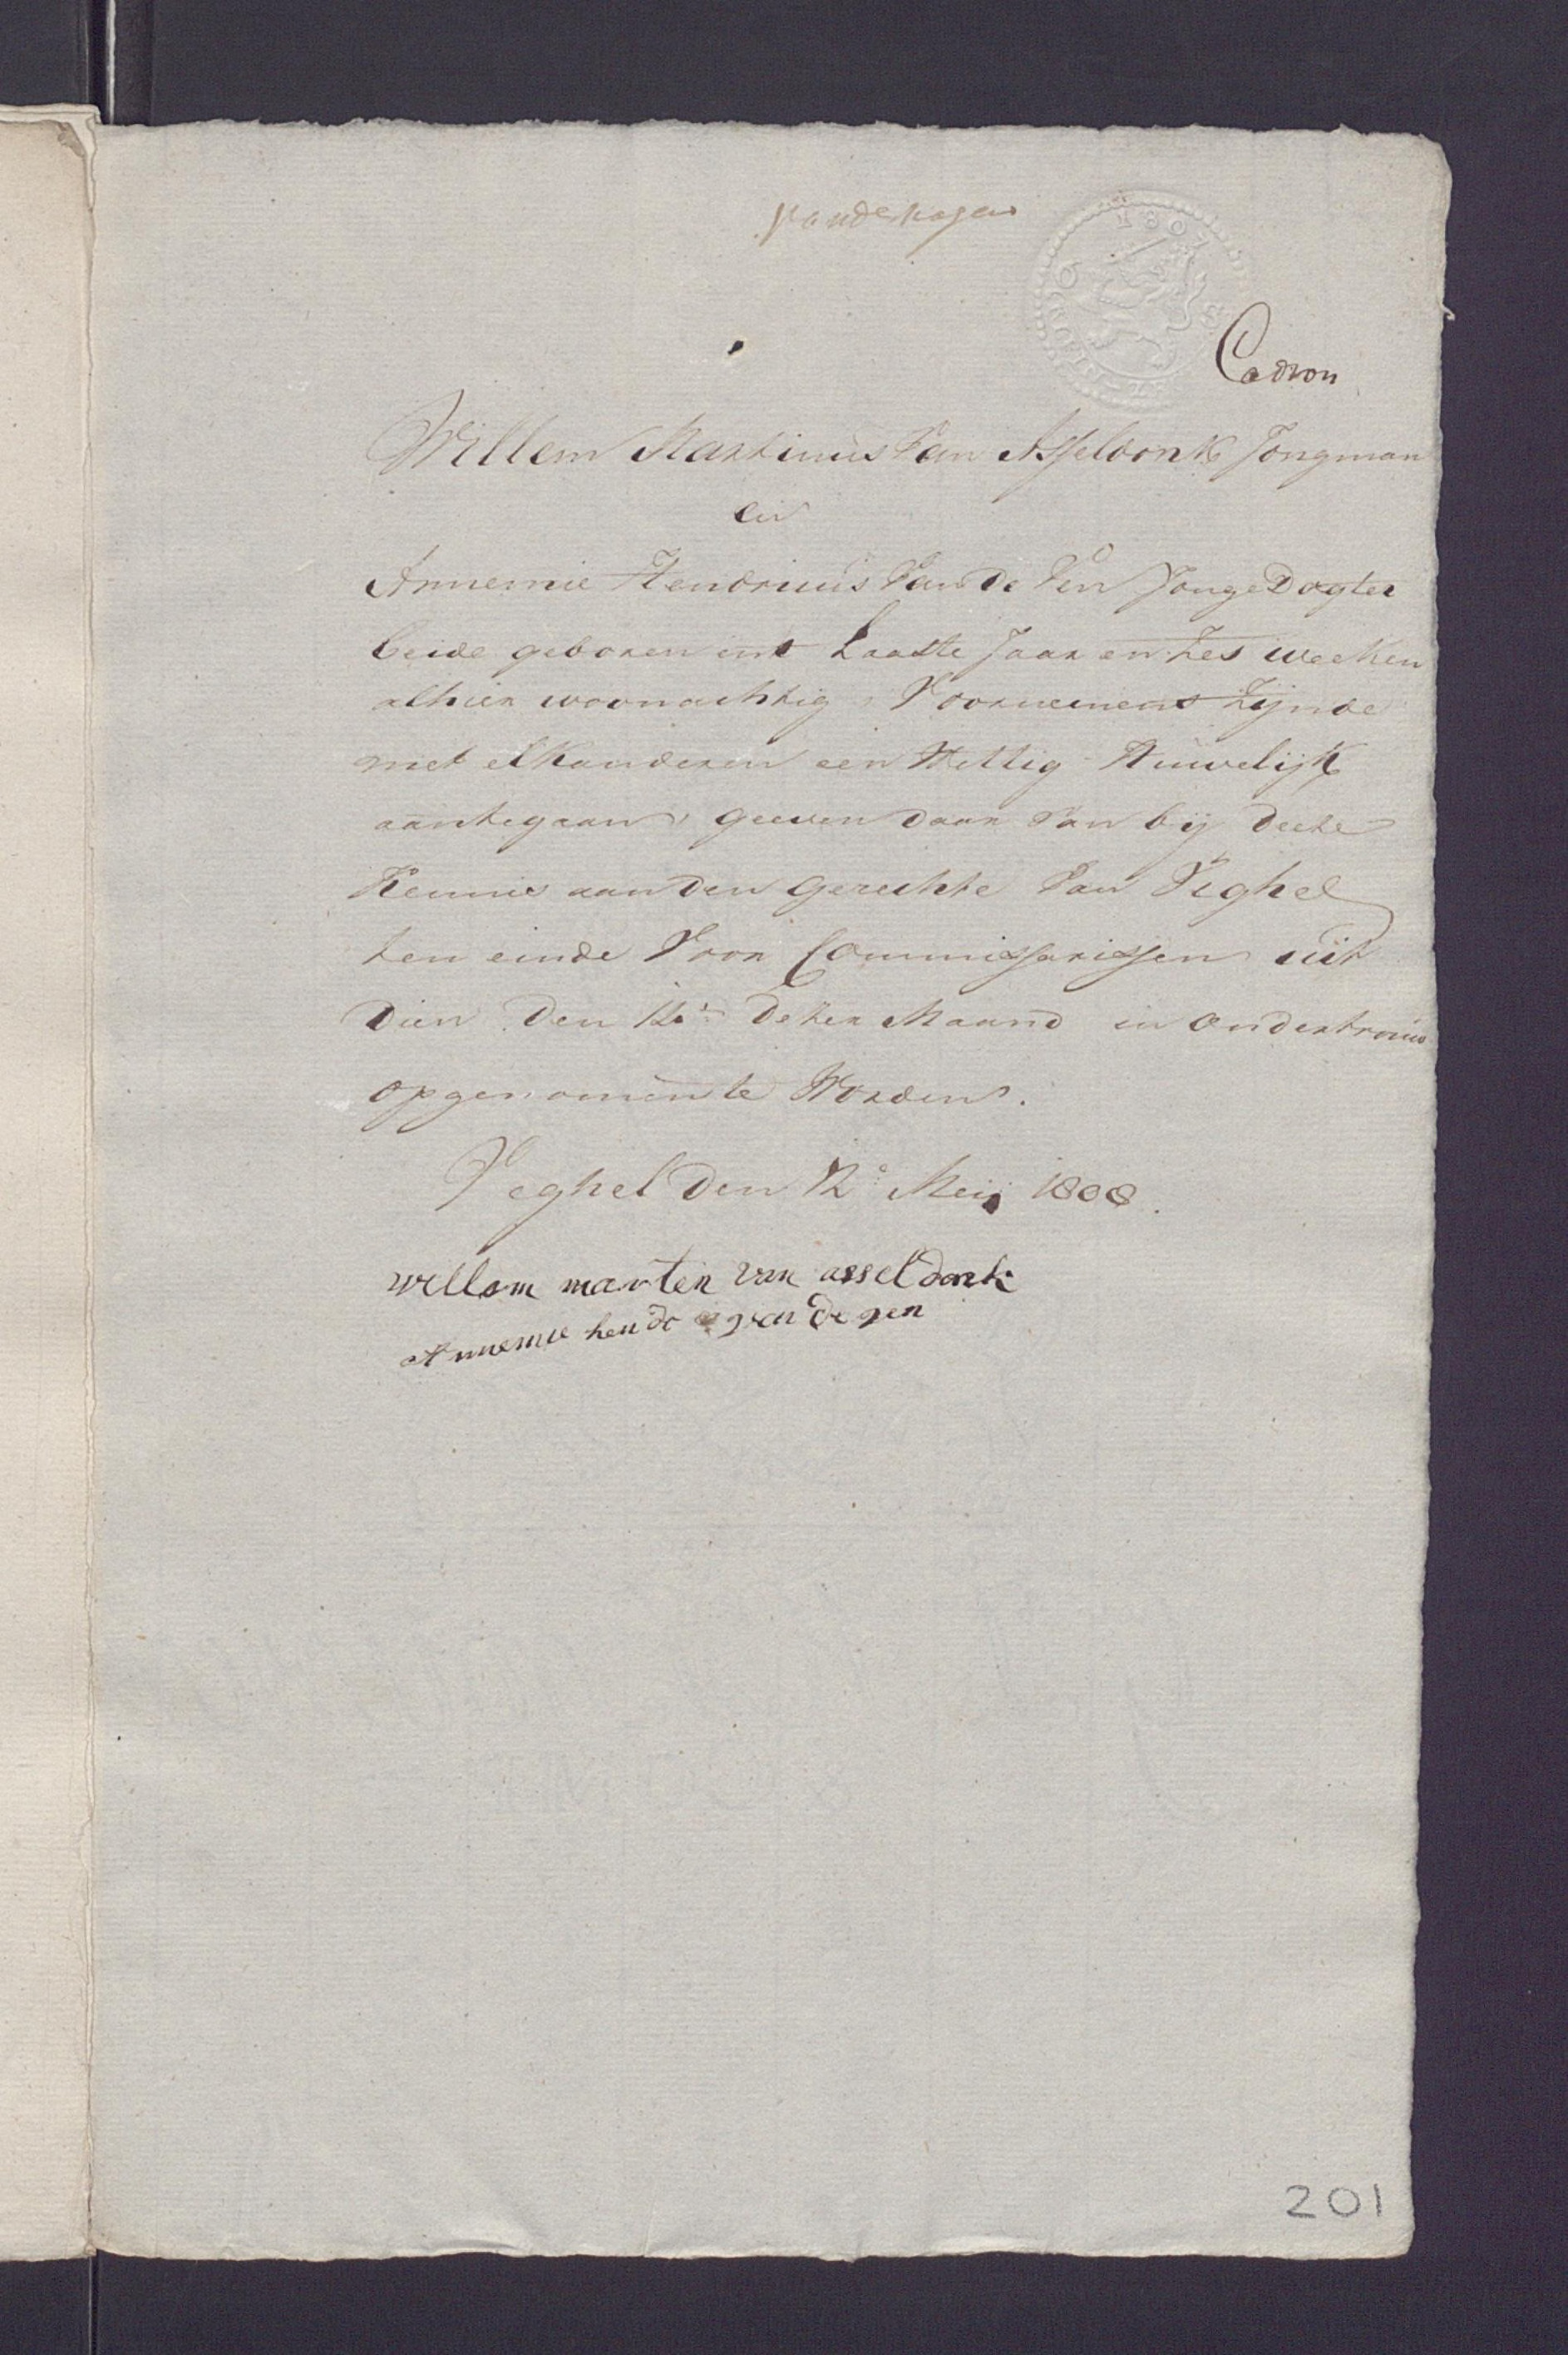 1807
Cadron
Willem Martinus Van Asseldonk Jongman
en
Annemie Hendricus Van De Ven Jonge Dogter
beide geboren en't Laaste Jaar en Zes weeken
alhier woonachtig, Voornemens Zijnde
met elkanderen een Wettig Huwelijk
aantegaan, geeven daar van bij deeze
Kennis aan den Gerechte Van Veghel
ten einde Voor Commissarissen uit
dien den 12e dezer Maand in ondertrouw
opgenomen te Worden.
Veghel den 12e Meij 1808.
willem marten van asseldonk
Annemie hendr van de ven
201